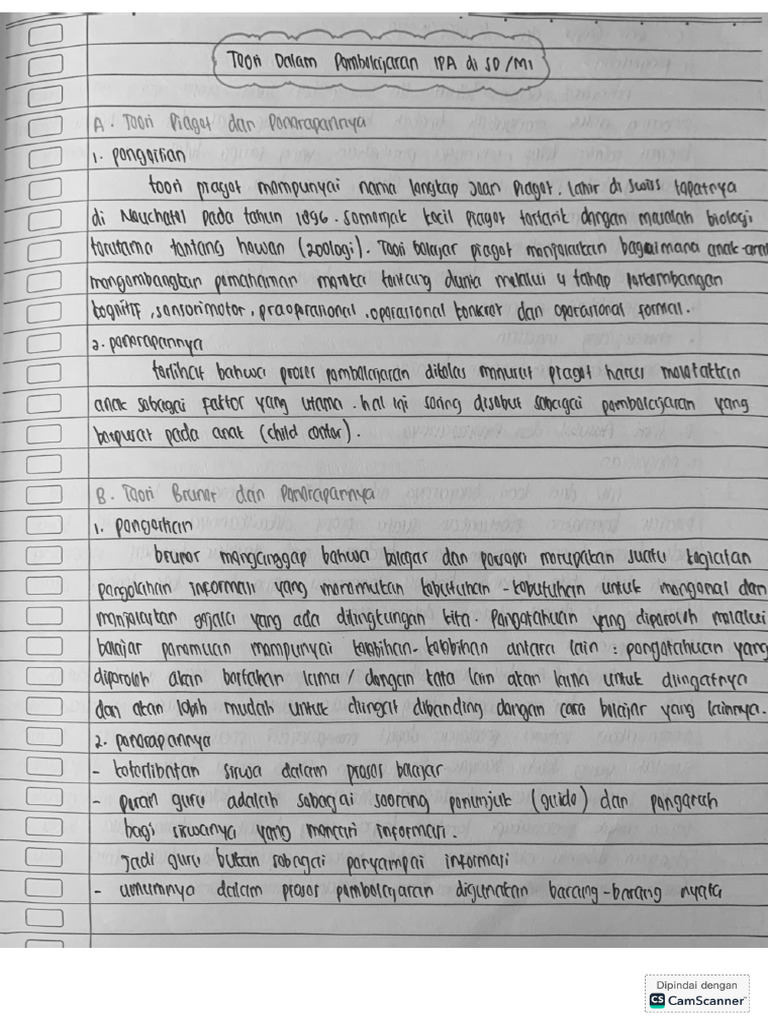 Teori Dalam Pembelajaran IPA di SD/MI
A. Teori Piaget dan Penerapannya
1. pengertian
teori piaget mempunyai nama lengkap Jean Piaget. Lahir di Swiss tepatnya
di Neuchatel pada tahun 1896. Semenjak kecil Piaget tertarik dengan masalah biologi
terutama tentang hewan (zoologi). Teori belajar piaget menjelaskan bagaimana anak-anak
mengembangkan pemahaman mereka tentang dunia melalui 4 tahap perkembangan
kognitif, sensorimotor, praoperasional, operasional konkret dan operasional formal.
2. penerapannya
terlihat bahwa proses pembelajaran dikelas menurut piaget harus meletakkan
anak sebagai faktor yang utama. hal ini sering disebut sebagai pembelajaran yang
berpusat pada anak (child center).
B. Teori Bruner dan Penerapannya
1. pengertian
bruner menganggap bahwa belajar dan persepsi merupakan suatu kegiatan
pengolahan informasi yang menemukan kebutuhan-kebutuhan untuk mengenal dan
menjelaskan gejala yang ada dilingkungan kita. Pengetahuan yang diperoleh melalui
belajar penemuan mempunyai kelebihan-kelebihan antara lain : pengetahuan yang
diperoleh akan bertahan lama/dengan kata lain akan lama untuk diingatnya
dan akan lebih mudah untuk diingat dibanding dengan cara belajar yang lainnya.
2. penerapannya
- keterlibatan siswa dalam proses belajar
- peran guru adalah sebagai seorang penunjuk (guide) dan pengarah
bagi siswanya yang mencari informasi.
Jadi guru bukan sebagai penyampai informasi
- umumnya dalam proses pembelajaran digunakan barang-barang nyata
Dipindai dengan
CS CamScanner